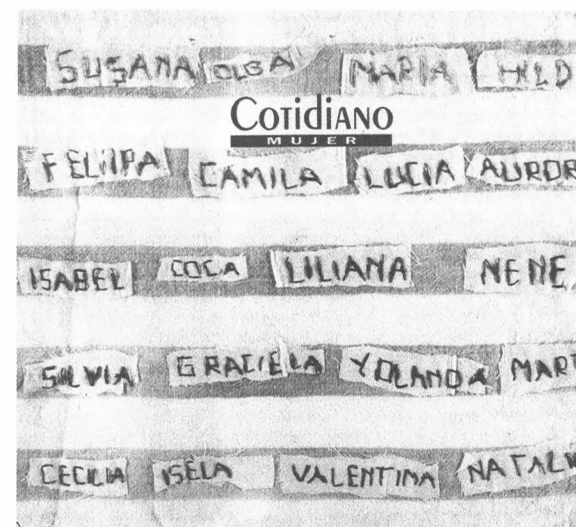 SUSANA OLGA MARIA HILD
COTIDIANO
MUJER
FELIIPA CAMILA LUCIA AUROR
ISABEL COCA LILIANA NENE
SILVIA GRACIELA YOLANDA MART
CECILIA ISELA VALENTINA NATAL